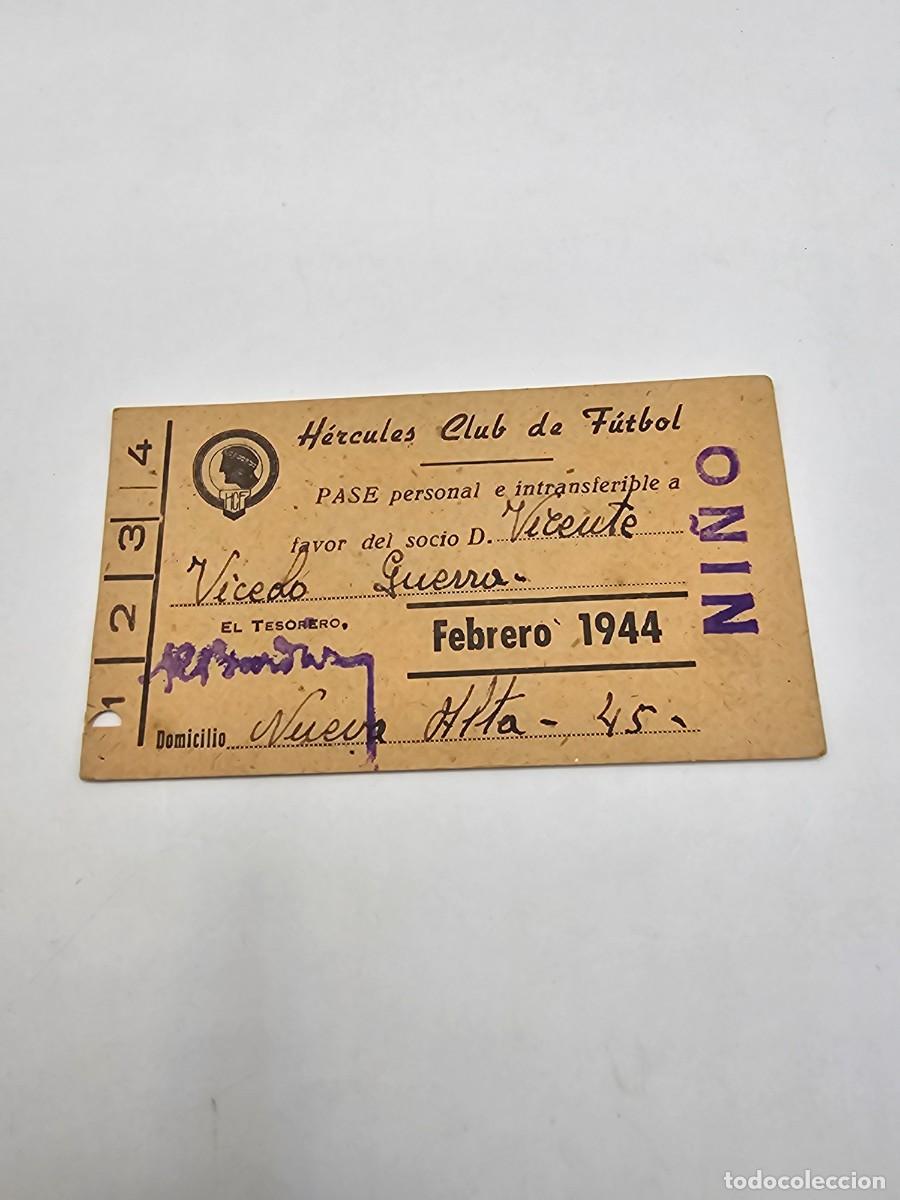 Hércules Club de Fútbol
HCF
PASE personal e intransferible a
favor del socio D. Vicente
Vicedo Guerra-
EL TESORERO,
Febrero 1944
Domicilio Nueva Alta - 45-
NIÑO
1 2 3 4
todocoleccion